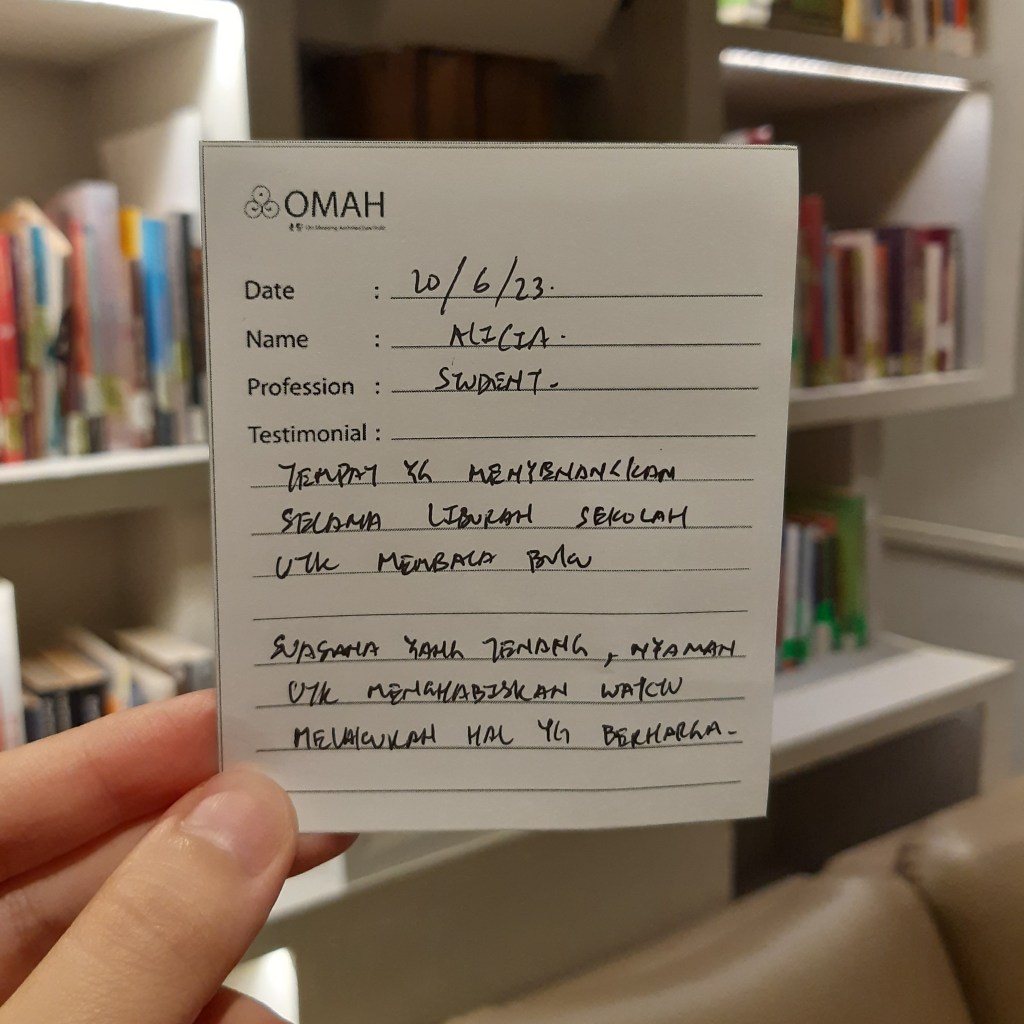 OMAH
Date : 20/6/23.
Name : ALICIA.
Profession : STUDENT.
Testimonial :
TEMPAT YG MENYENANGKAN
SELAMA LIBURAN SEKOLAH
UTK MEMBACA BUKU
SUASANA YANG TENANG, NYAMAN
UTK MENGHABISKAN WAKTU
MELAKUKAN HAL YG BERHARGA.